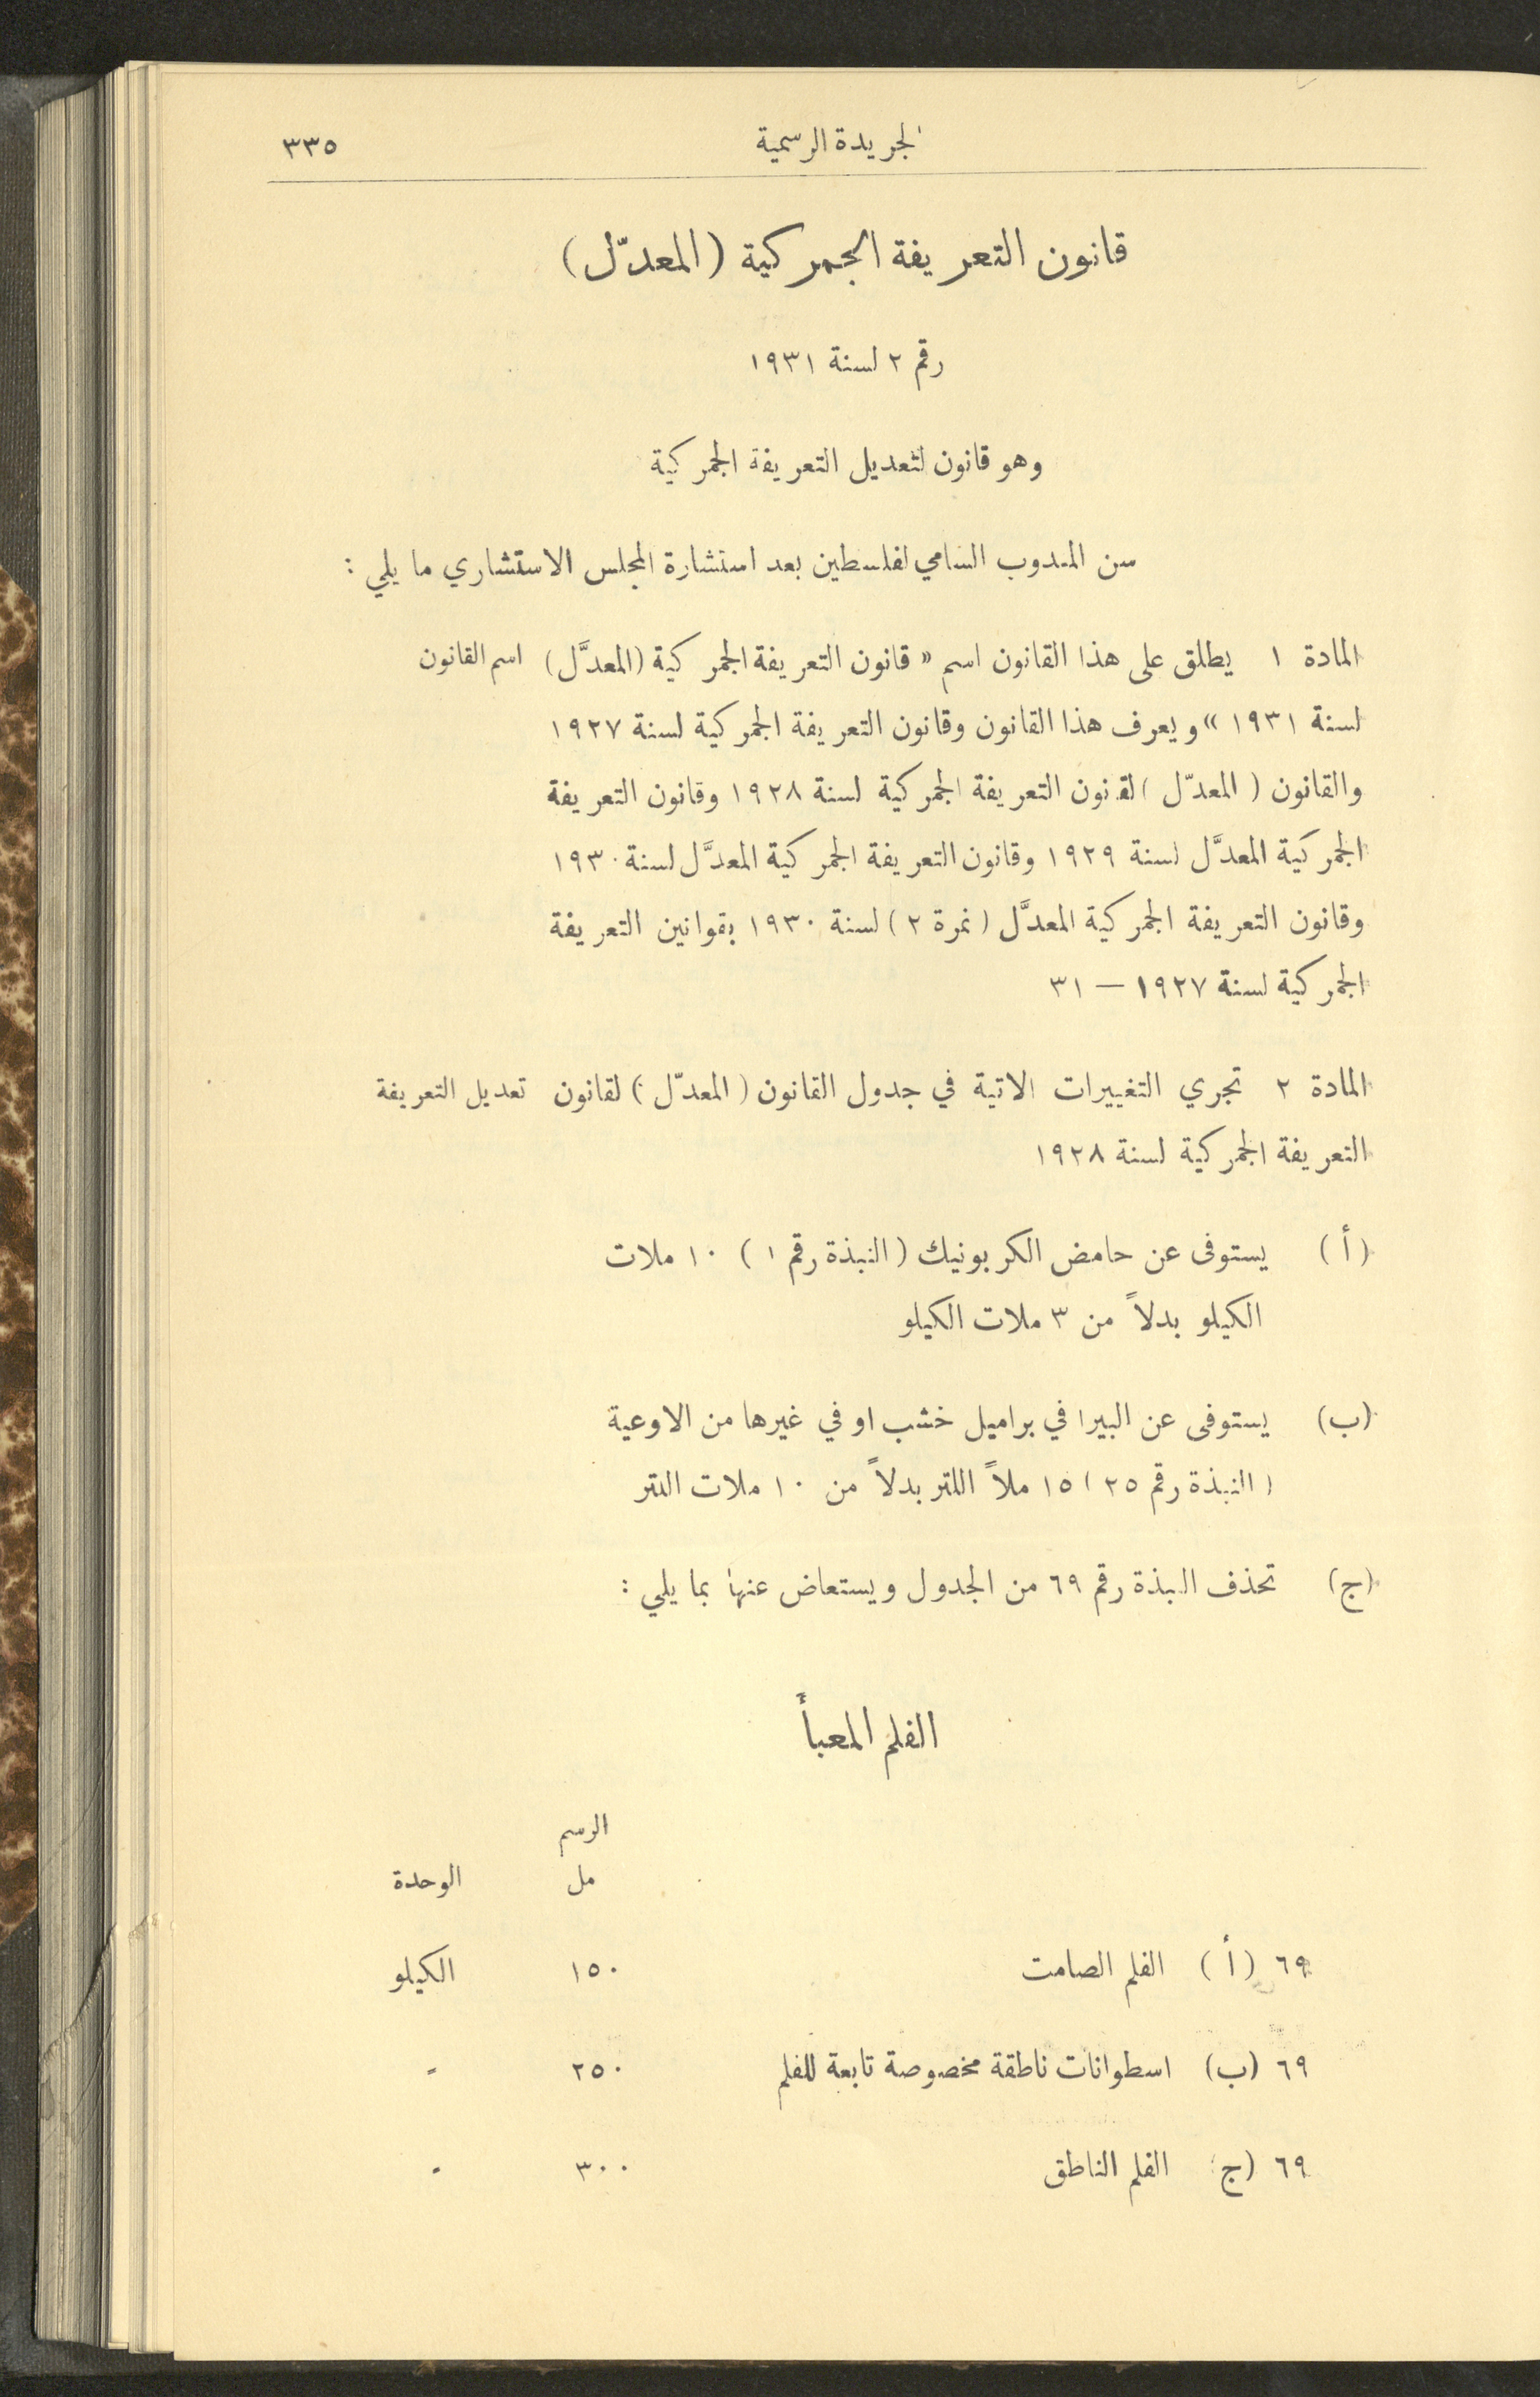 الجريدة الرسمية ٣٣٥
قانون التعريفة الجمركية (المعدّل)
رقم ٢ لسنة ١٩٣١
وهو قانون لتعديل التعريفة الجمركية
سن المندوب السامي لفلسطين بعد استشارة المجلس الاستشاري ما يلي :
المادة ١ يطلق على هذا القانون اسم « قانون التعريفة الجمركية (المعدَّل) اسم القانون
لسنة ١٩٣١ » ويعرف هذا القانون وقانون التعريفة الجمركية لسنة ١٩٢٧
والقانون ( المعدّل ) لقانون التعريفة الجمركية لسنة ١٩٢٨ وقانون التعريفة
الجمركية المعدَّل لسنة ١٩٢٩ وقانون التعريفة الجمركية المعدَّل لسنة ١٩٣٠
وقانون التعريفة الجمركية المعدَّل ( نمرة ٢ ) لسنة ١٩٣٠ بقوانين التعريفة
الجمركية لسنة ١٩٢٧ — ٣١
المادة ٢ تجري التغييرات الاتية في جدول القانون ( المعدّل ) لقانون تعديل التعريفة
التعريفة الجمركية لسنة ١٩٢٨
(أ) يستوفى عن حامض الكربونيك ( النبذة رقم ١ ) ١٠ ملات
الكيلو بدلاً من ٣ ملات الكيلو
(ب) يستوفى عن البيرا في براميل خشب او في غيرها من الاوعية
( النبذة رقم ٢٥ ) ١٥ ملاً اللتر بدلاً من ١٠ ملات اللتر
(ج) تحذف النبذة رقم ٦٩ من الجدول ويستعاض عنها بما يلي :
الفلم المعبأ
الرسم
مل الوحدة
٦٩ (أ) الفلم الصامت ١٥٠ الكيلو
٦٩ (ب) اسطوانات ناطقة مخصوصة تابعة للفلم ٢٥٠ -
٦٩ (ج) الفلم الناطق ٣٠٠ -